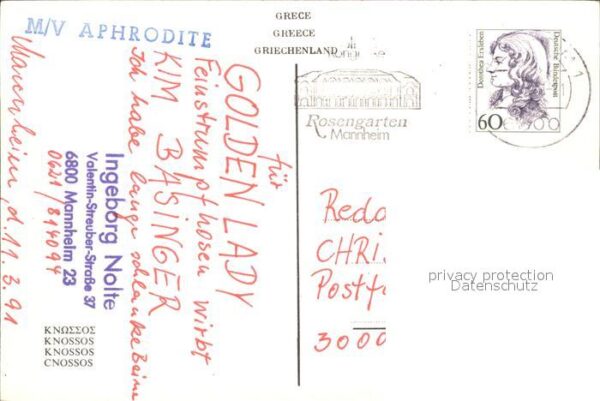 GRECE
GREECE
GRIECHENLAND
M/V APHRODITE
für
GOLDEN LADY
Feinstrumpfhosen wirbt
KIM BASINGER
Ich habe lange schlanke Beine
Ingeborg Nolte
Valentin-Streuber-Straße 37
6800 Mannheim 23
0621/814094
Mannheim, d. 11.3.91
ΚΝΩΣΣΟΣ
KNOSSOS
KNOSSOS
CNOSSOS
Rosengarten
Mannheim
Dorothea Erxleben
Deutsche Bundespost
60
Reda
CHRI
Postfa
3000
privacy protection
Datenschutz